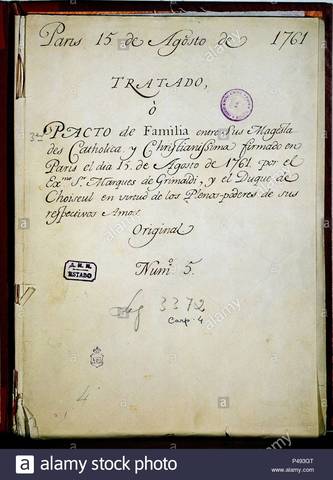 Paris 15 de Agosto de 1761
TRATADO,
ò
PACTO de Familia entre Sus Magesta
des Catholica, y Christianissima firmado en
Paris el dia 15. de Agosto de 1761. por el
Exmo. Sr. Marques de Grimaldi, y el Duque de
Choiseul en virtud de los Plenos-poderes de sus
respectivos Amos.
Original
Numo. 5.
A.H.N.
ESTADO
Leg 3372
Carp. 4
4
alamy
alamy stock photo
P493GT
www.alamy.com